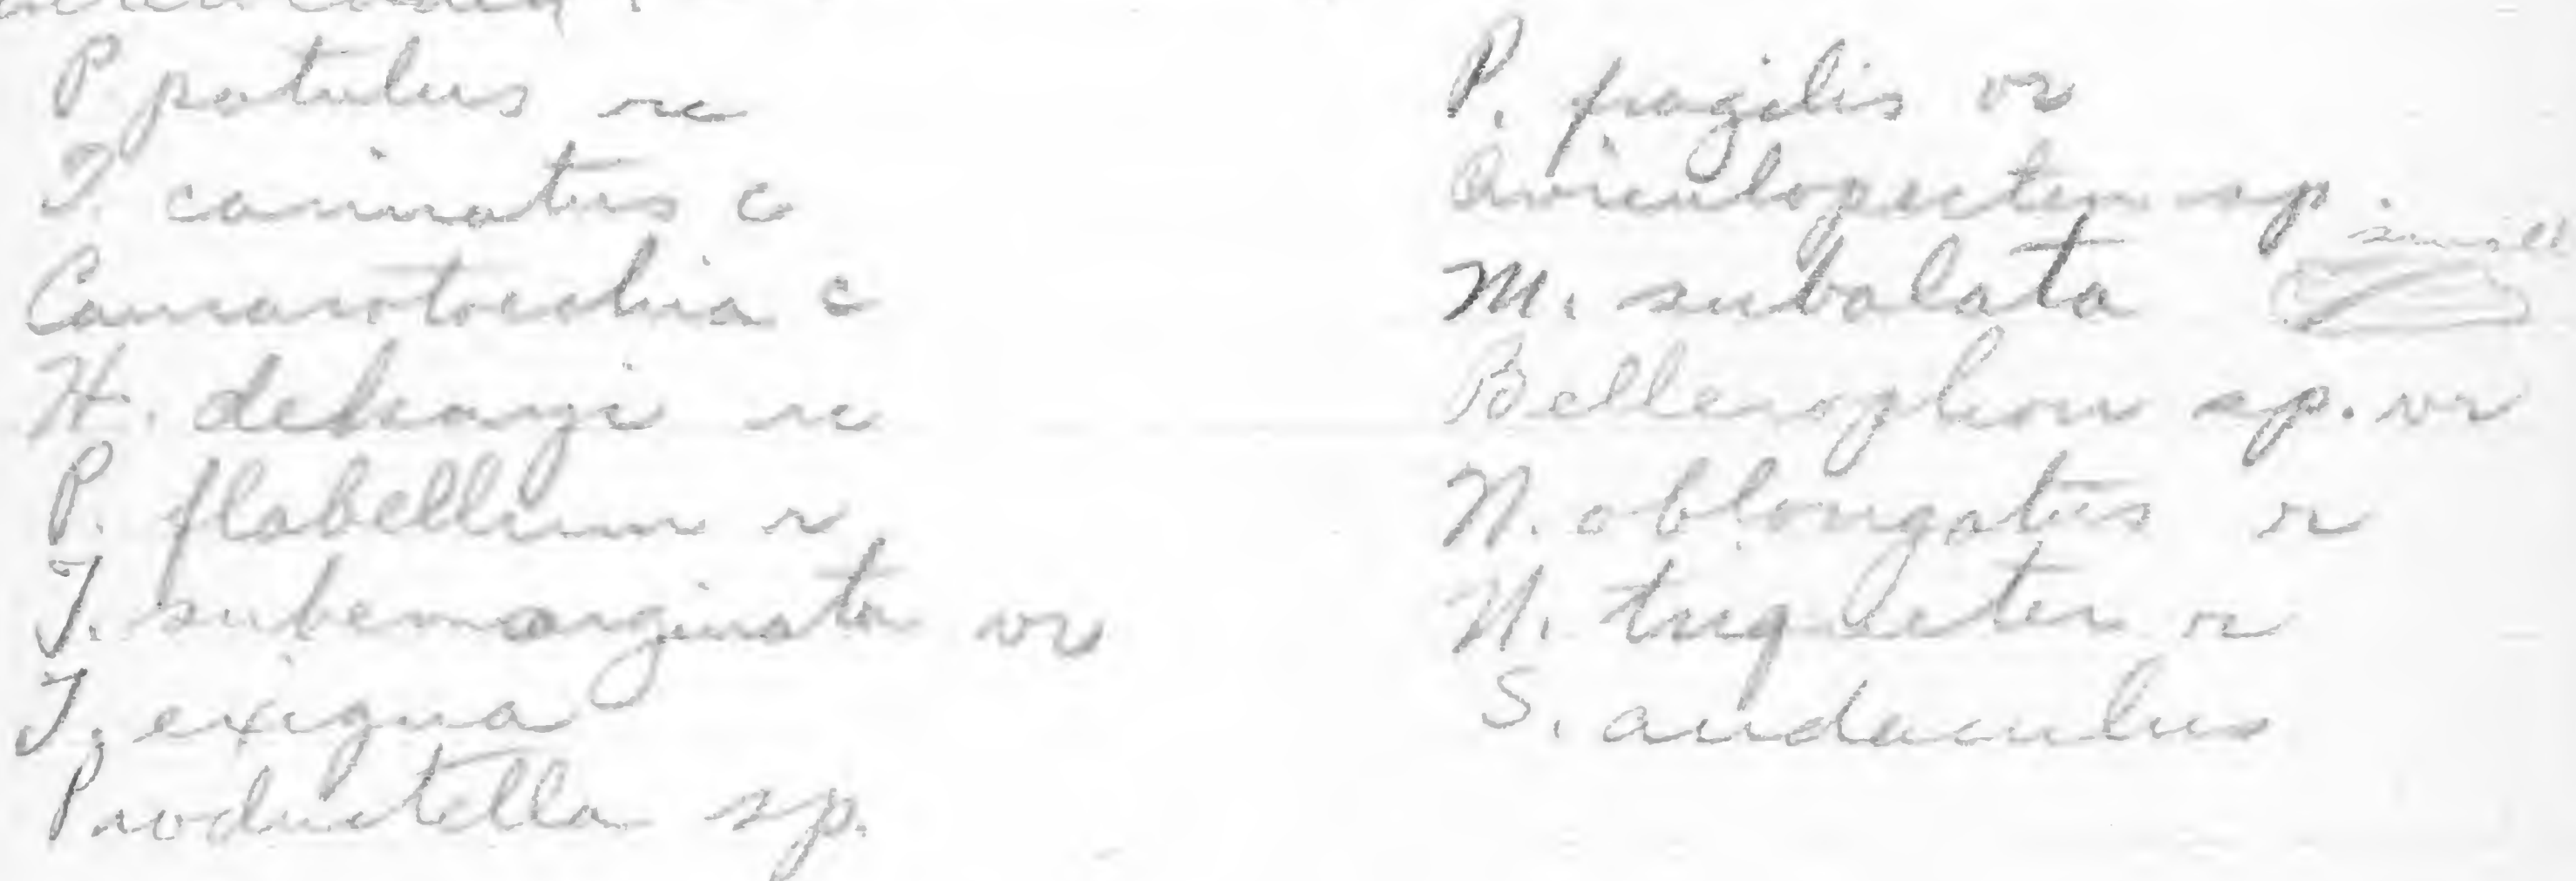 P. patulus rc
T. carinatus c
Camarotoechia c
H. dekayi rc
P. flabellum r
T. subemarginata vr
T. exigua
Productella sp.
P. fragilis vr
Aviculopecten sp. small
M. subalata
Bellerophon sp. vr
N. oblongatus r
N. triqueter r
S. audaculus